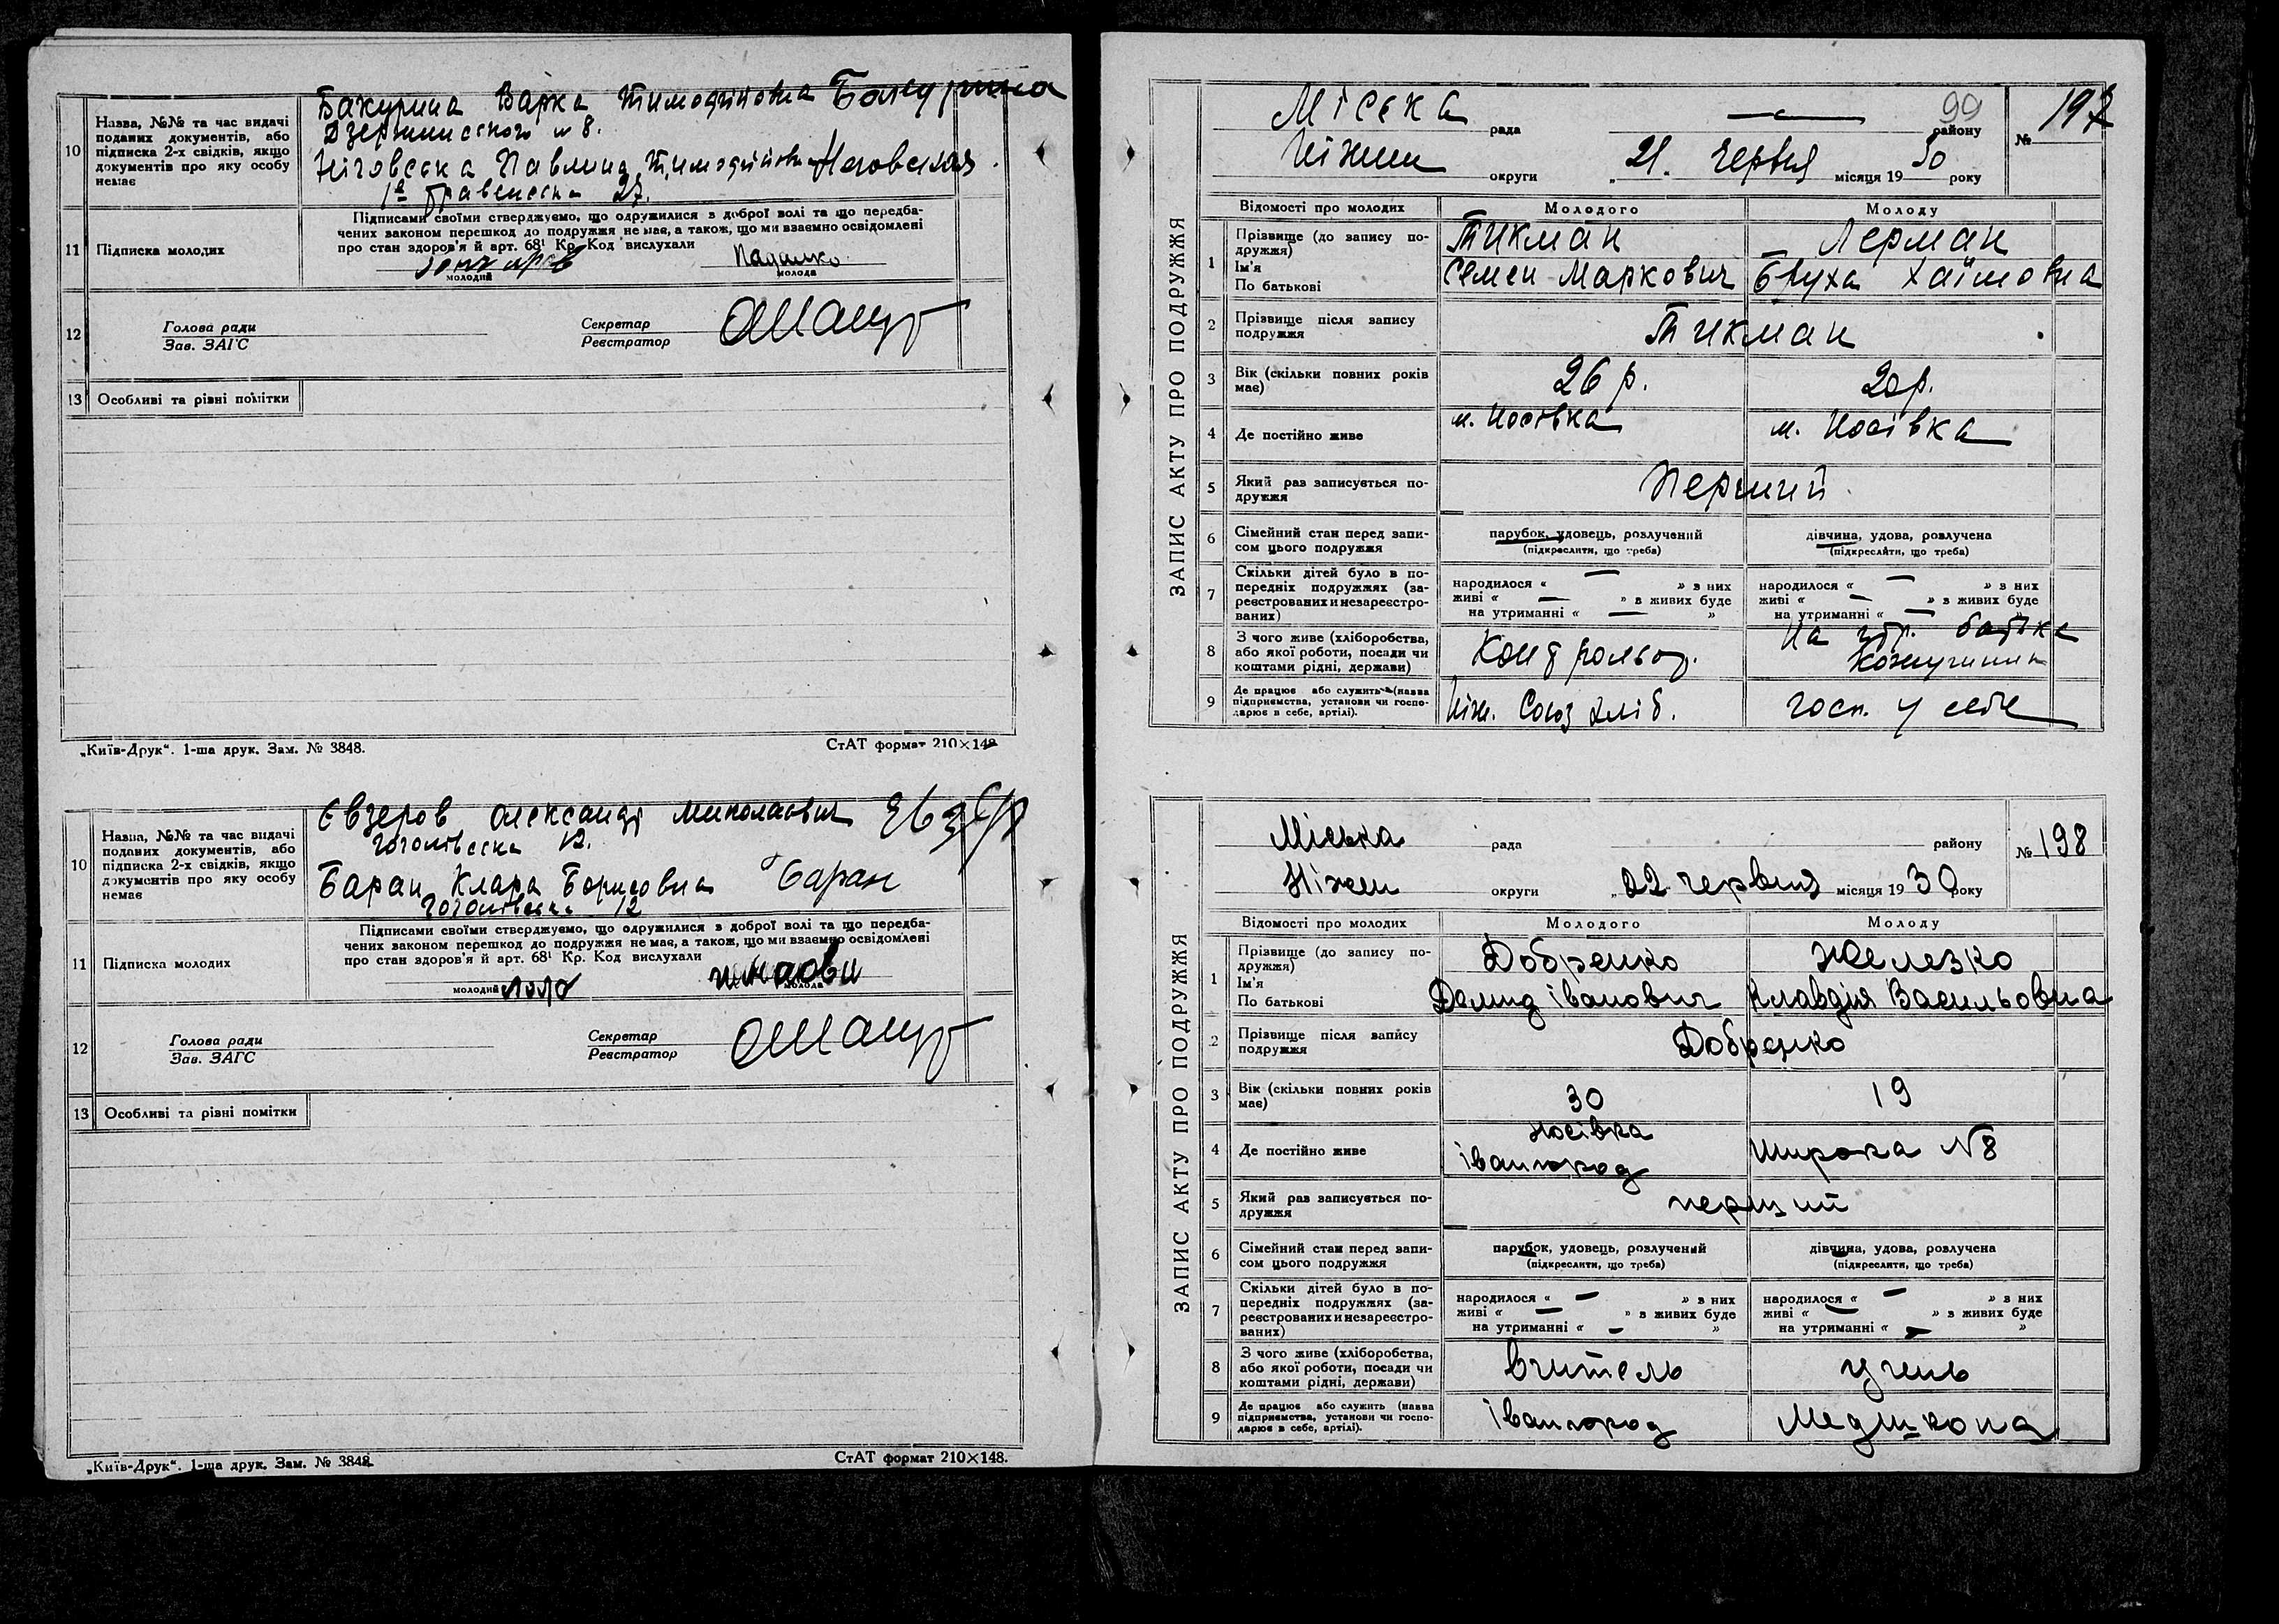 10 Назва, №№ та час видачі поданих документів, або підписка 2-х свідків, якщо документів про яку особу немає
Бакурина Варка Тимофіївна Бакурина
Дзержинського № 8.
Ніговська Павлина Тимофіївна
27.
11 Підписка молодих
Підписами своїми стверджуємо, що одружилися з доброї волі та що передба-
чених законом перешкод до подружжя не має, а також, що ми взаємно освідомлені
про стан здоров'я й арт. 68¹ Кр. Код вислухали
молодий
молода
12 Голова ради
Зав. ЗАГС
Секретар
Реєстратор
13 Особливі та рівні помітки
„Київ-Друк“. 1-ша друк. Зам. № 3848.
СтАТ формат 210×148
10 Назва, №№ та час видачі поданих документів, або підписка 2-х свідків, якщо документів про яку особу немає
Євзеров Олександр Миколаєвич
Гоголівська 12.
Баран Клара Борисовна Баран
Гоголівська 12
11 Підписка молодих
Підписами своїми стверджуємо, що одружилися з доброї волі та що передба-
чених законом перешкод до подружжя не має, а також, що ми взаємно освідомлені
про стан здоров'я й арт. 68¹ Кр. Код вислухали
молодий
молода
12 Голова ради
Зав. ЗАГС
Секретар
Реєстратор
13 Особливі та рівні помітки
„Київ-Друк“. 1-ша друк. Зам. № 3848.
СтАТ формат 210×148.
ЗАПИС АКТУ ПРО ПОДРУЖЖЯ
99
Міська рада — району № 197
Ніжин округи „21. червня місяця 1930 року
Відомості про молодих Молодого Молоду
1 Прізвище (до запису по-
дружжя) Тикман Лерман
Ім'я
По батькові Семен Маркович Бруха Хаїмовна
2 Прізвище після запису
подружжя Тикман
3 Вік (скільки повних років
має) 26 р. 20 р.
4 Де постійно живе м. Носівка м. Носівка
5 Який раз записується по-
дружжя Перший
6 Сімейний стан перед запи-
сом цього подружжя
парубок, удовець, розлучений
(підкреслити, що треба)
дівчина, удова, розлучена
(підкреслити, що треба)
7 Скільки дітей було в по-
передніх подружжях (за-
реєстрованих и незареєстро-
ваних)
народилося « — » з них
живі « — » з живих буде
на утриманні « — »
народилося « — » з них
живі « — » з живих буде
на утриманні « — »
8 З чого живе (хліборобства,
або якої роботи, посади чи
коштами рідні, держави)
Контрольор.
На утр. батька
9 Де працює або служить (назва
підприємства, установи чи госпо-
дарює в себе, артілі).
Ніж. Союз хліб.
госп. у себе
ЗАПИС АКТУ ПРО ПОДРУЖЖЯ
Міська рада району № 198
Ніжин округи „22 червня місяця 1930 року
Відомості про молодих Молодого Молоду
1 Прізвище (до запису по-
дружжя) Добренко Железко
Ім'я
По батькові Демид Іванович Клавдія Васильовна
2 Прізвище після запису
подружжя Добренко
3 Вік (скільки повних років
має) 30 19
4 Де постійно живе Носівка
Івангород Широка № 8
5 Який раз записується по-
дружжя перший
6 Сімейний стан перед запи-
сом цього подружжя
парубок, удовець, розлучений
(підкреслити, що треба)
дівчина, удова, розлучена
(підкреслити, що треба)
7 Скільки дітей було в по-
передніх подружжях (за-
реєстрованих и незареєстро-
ваних)
народилося « — » з них
живі « — » з живих буде
на утриманні « — »
народилося « — » з них
живі « — » з живих буде
на утриманні « — »
8 З чого живе (хліборобства,
або якої роботи, посади чи
коштами рідні, держави)
вчитель учень
9 Де працює або служить (назва
підприємства, установи чи госпо-
дарює в себе, артілі).
Івангород Медшкола